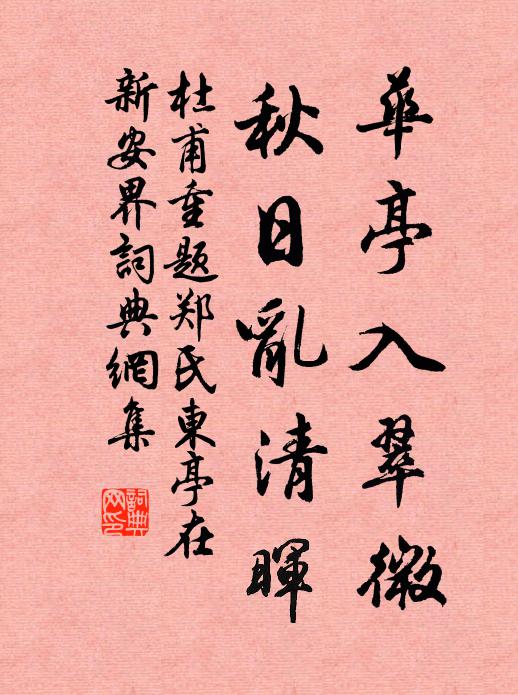 華亭入翠微
秋日亂清暉
杜甫重題郑民東亭在
新安界詞典網集
詞典
网印